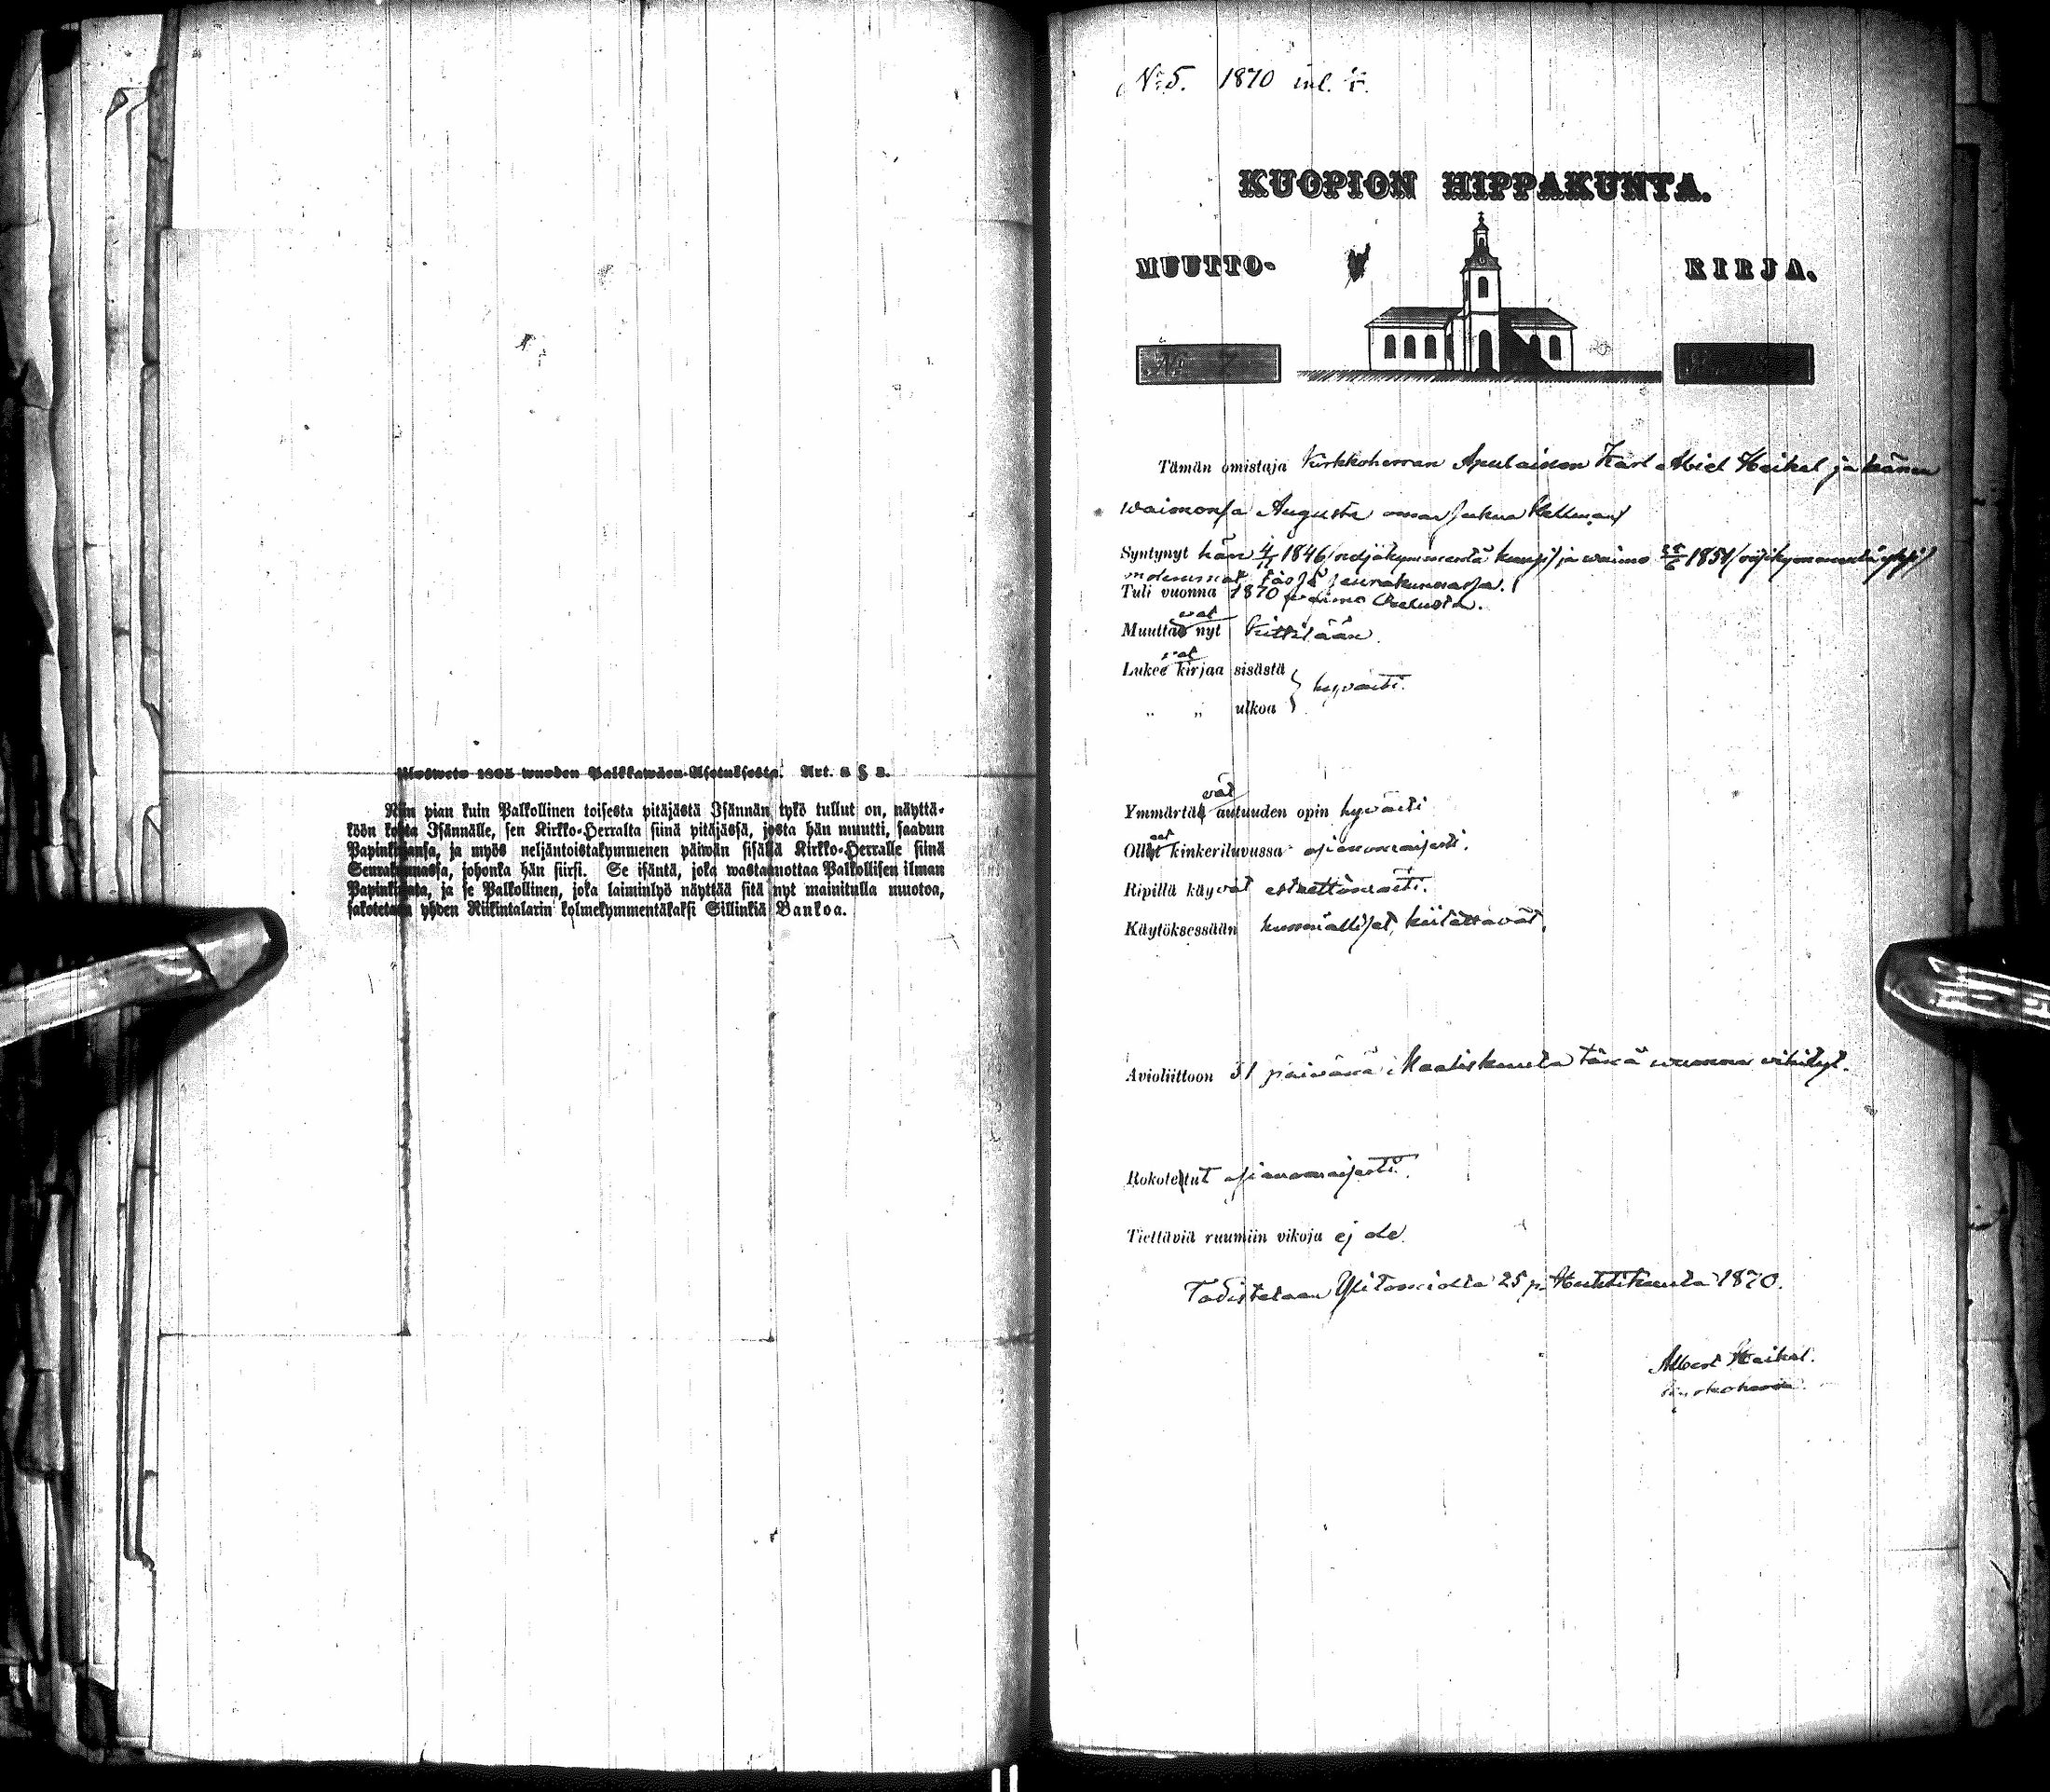 Ulosweto 1805 wuoden Palkkawäen-Asetuksesta. Art. 3 § 3.
Niin pian kuin Palkollinen toisesta pitäjästä Isännän tykö tullut on, näyttä-
köön kohta Isännälle, sen Kirkko-Herralta siinä pitäjässä, josta hän muutti, saadun
Papinkirjansa, ja myös neljäntoistakymmenen päiwän sisällä Kirkko-Herralle siinä
Seurakunnassa, johonka hän siirsi. Se isäntä, joka wastaanottaa Palkollisen ilman
Papinkirjata, ja se Palkollinen, joka laiminlyö näyttää sitä nyt mainitulla muotoa,
sakotetaan yhden Riikintalarin kolmekymmentäkaksi Sillinkiä Bankoa.
No 5. 1870 inl.
KUOPION HIPPAKUNTA.
MUUTTO- KIRJA.
Tämän omistaja Kirkkoherran Apulaisen Karl Abiel Heikel ja hänen
waimonsa Augusta omaa sukua Hellman
Syntynyt hän 1846 /neljäkymmentä kuusi/ ja waimo 1851 /wiisikymmentä yksi/
molemmat tässä seurakunnassa.
Tuli vuonna 1870 waimo Oulusta.
Muuttavat nyt Kittilään.
Lukevat kirjaa sisästä
„ „ ulkoa } hyvästi.
Ymmärtävät autuuden opin hyvästi
Olleet kinkeriluvussa asianomaisesti.
Ripillä käyvät esteettömästi.
Käytöksessään kunnialliset, kiitettävät.
Avioliittoon 31 päivänä Maaliskuuta tänä wuonna vihityt.
Rokotetut asianomaisesti.
Tiettäviä ruumiin vikoja ej ole.
Todistetaan Ylitorniolla 25 p. Huhtikuuta 1870.
Albert Heikel.
Kirkkoherra.